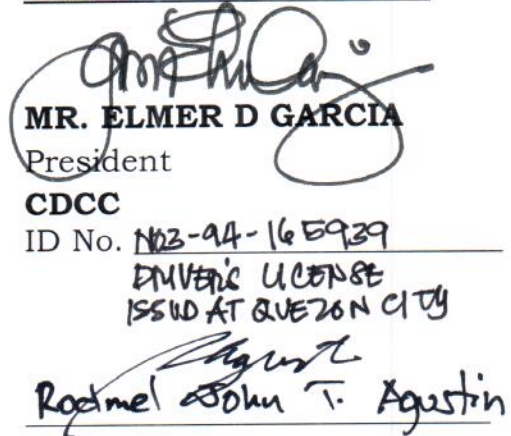 MR. ELMER D GARCIA
President
CDCC
ID No. N03-94-165939
DRIVER'S LICENSE
ISSUED AT QUEZON CITY
Rodmel John T. Agustin